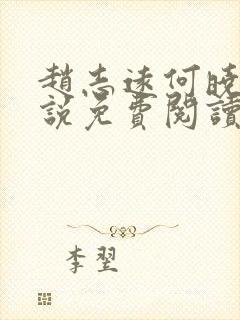 趙志遠何曉
說免費閱讀
李翌